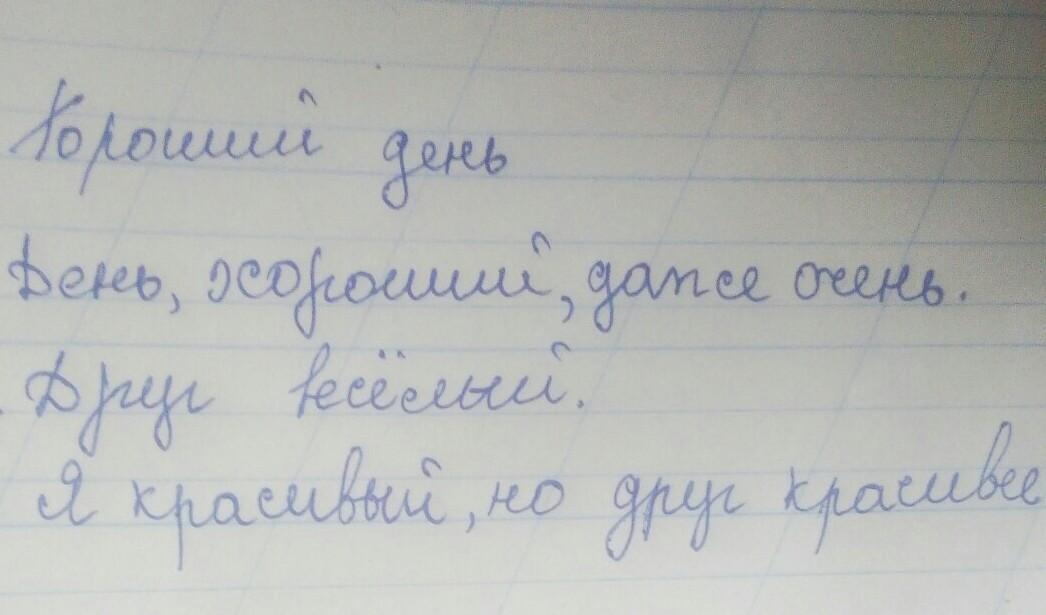 Хороший день
День, хороший, даже очень.
Друг весёлый.
Я красивый, но друг красивее